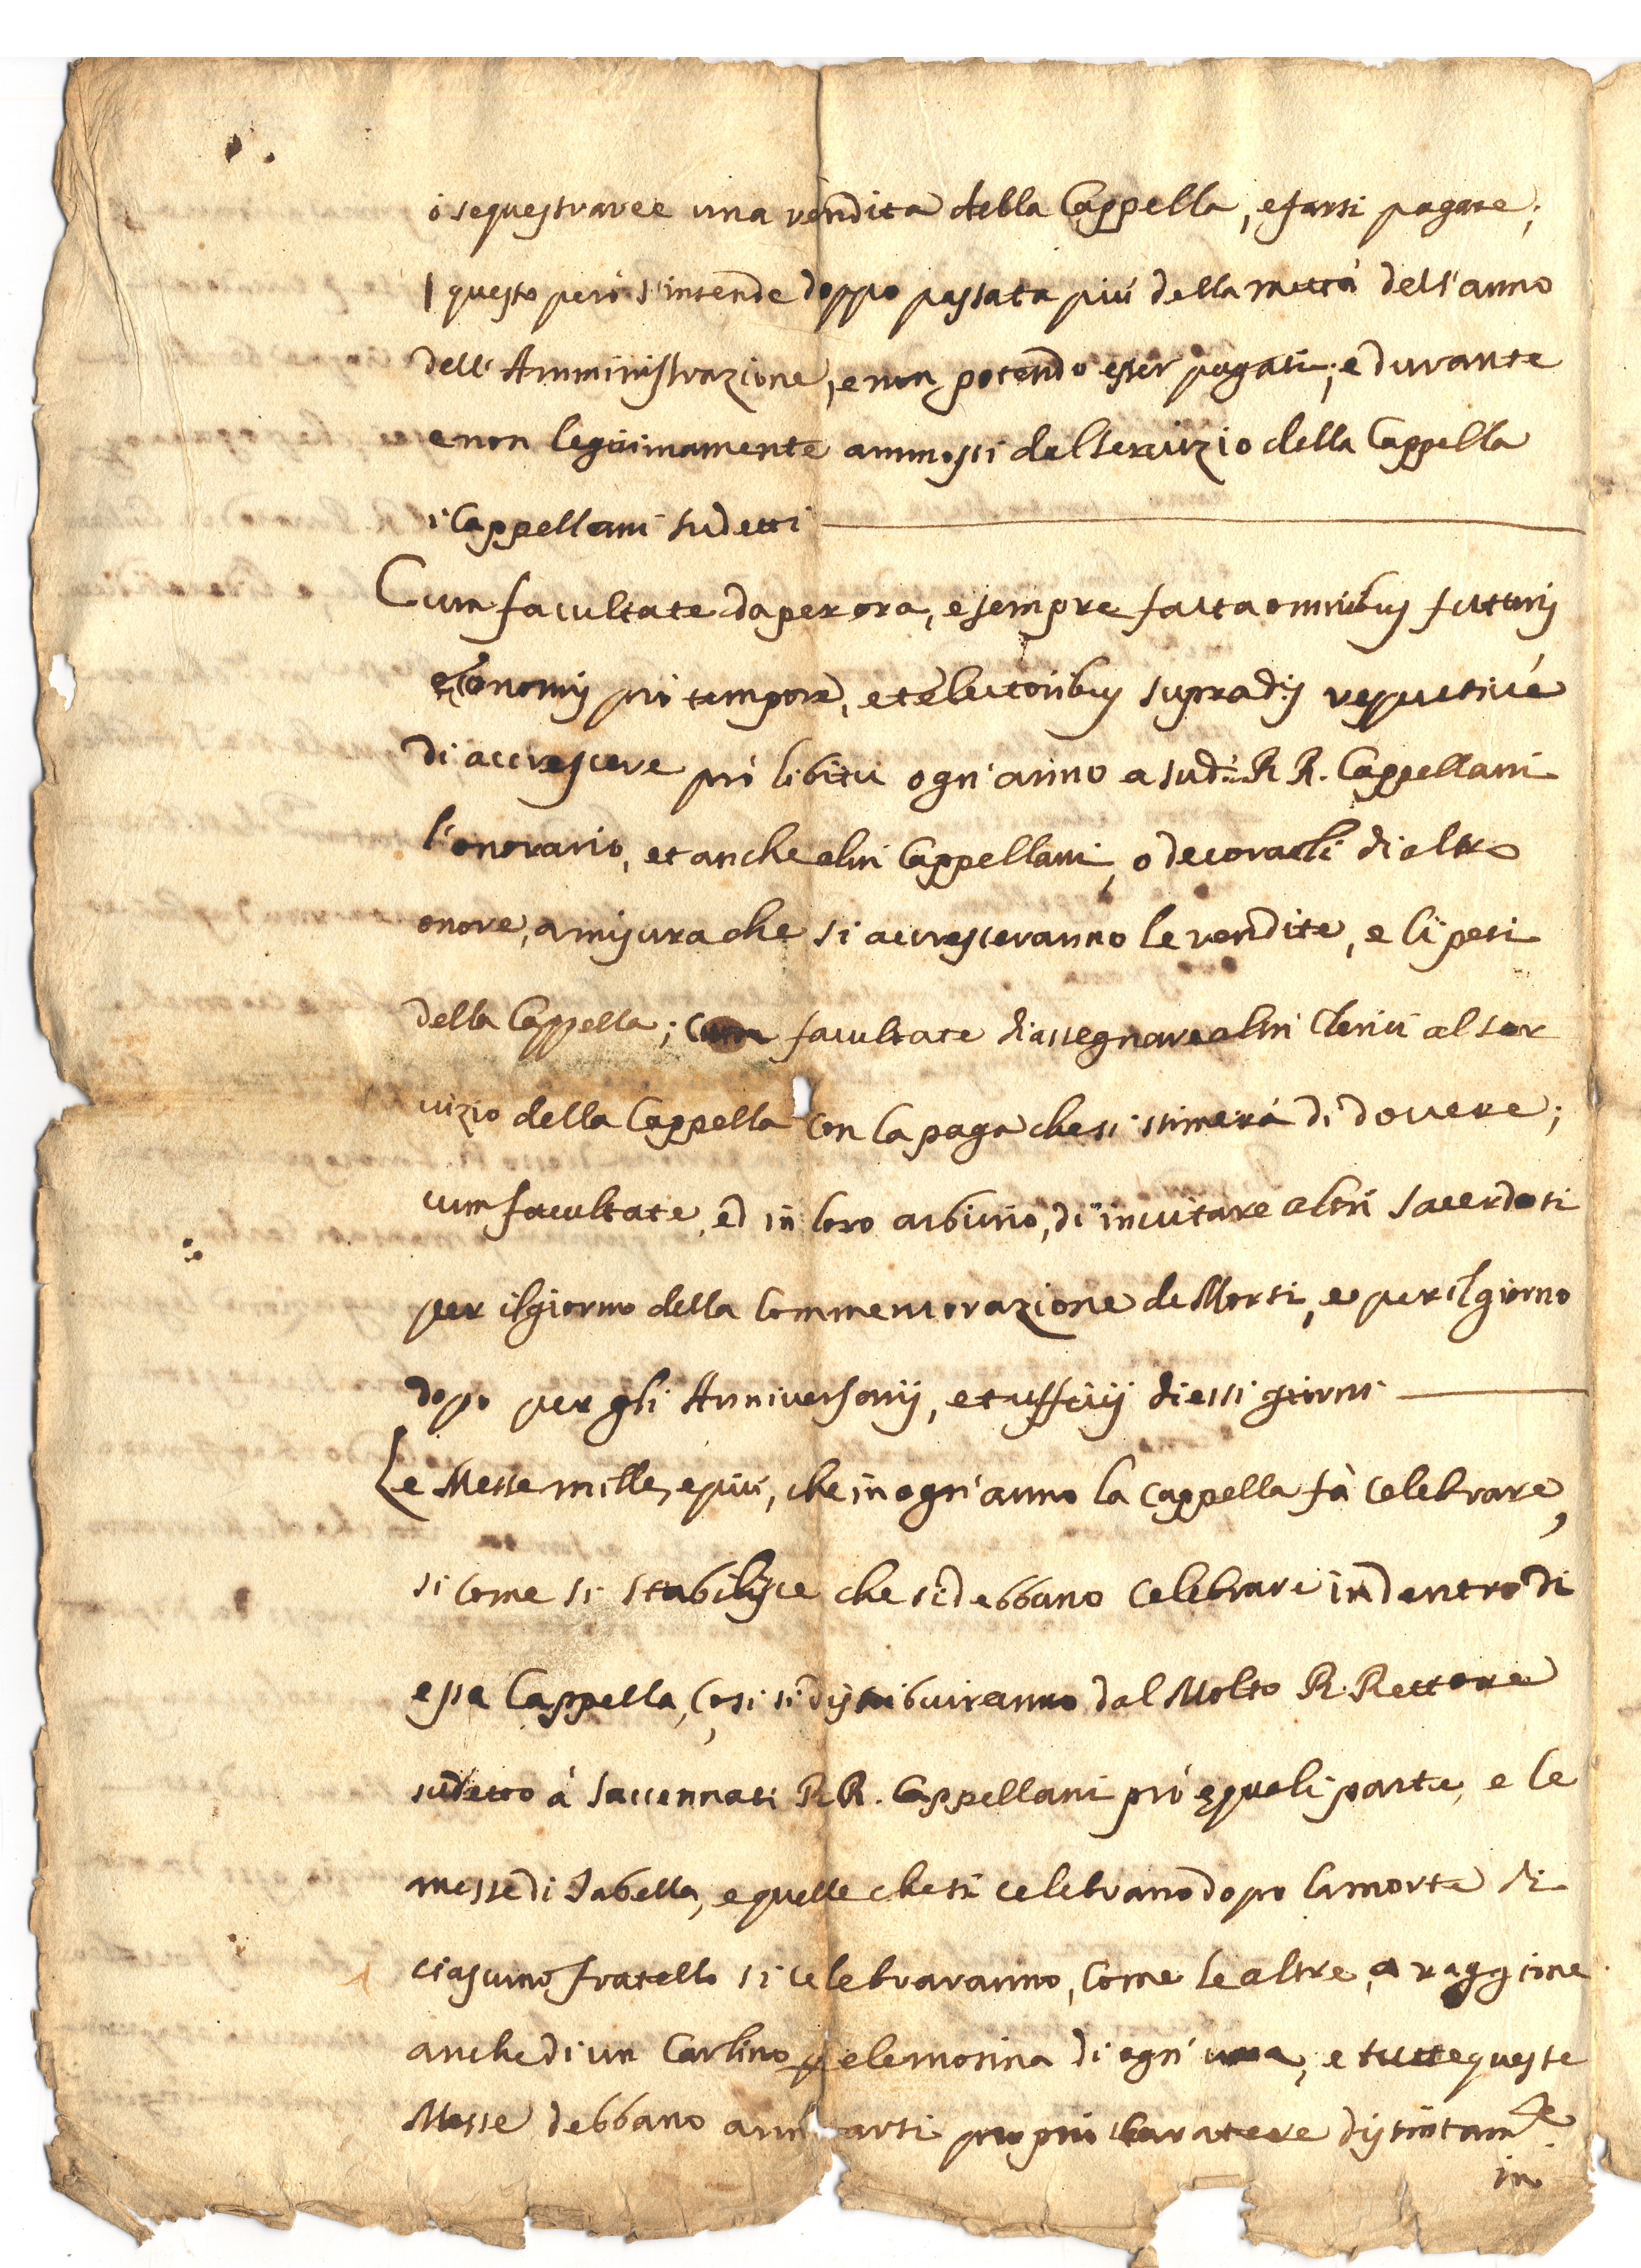 ò sequestraree una rendita della Cappella, e farsi pagare;
questo però s'intende doppo passata più della mettà dell'anno
dell'Amministrazione, e non potendo esser pagati; e durante
e non legitimamente ammossi dal servizio della Cappella
i Cappellani sudetti
Cum facultate da per ora, e sempre fatta omnibus futuris
economis prò tempore, et electoribus supradis respectivè
di accrescere prò libitu ogn'anno a sudi RR. Cappellani
l'onorario, et anche altri Cappellani, o decorarli di altro
onore, a misura che si accresceranno le rendite, e li pesi
della Cappella; cum facultate di assegnare altri Clerici al ser
vizio della Cappella con la paga che si stimerà di dovere;
cum facultate, ed in loro arbitrio, di invitare altri Sacerdoti
per il giorno della Commemorazione de Morti, e per il giorno
dopo per gli Anniversarij, et ufficij di essi giorni
Le Messe mille, e più, che in ogn'anno la Cappella fà celebrare,
si come si stabilisce che si debbano celebrare in dentro di
essa Cappella, così si distribuiranno dal Molto R. Rettore
sudetto à saccennati RR. Cappellani prò equali parte, e le
messe di Tabella, e quelle che si celebrano dopo la morte di
ciascuno fratello si celebraranno, come le altre, a raggione
anche di un Carlino p elemosina di ogn'una, e tutte queste
Messe debbano arsi proprio caratere distintamte
in